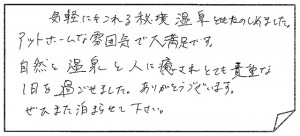 気軽にこれる秘境温泉とてもたのしめました。
アットホームな雰囲気で大満足です。
自然と温泉と人に癒されとても貴重な
1日を過ごせました。ありがとうございます。
ぜひまた泊まらせて下さい。